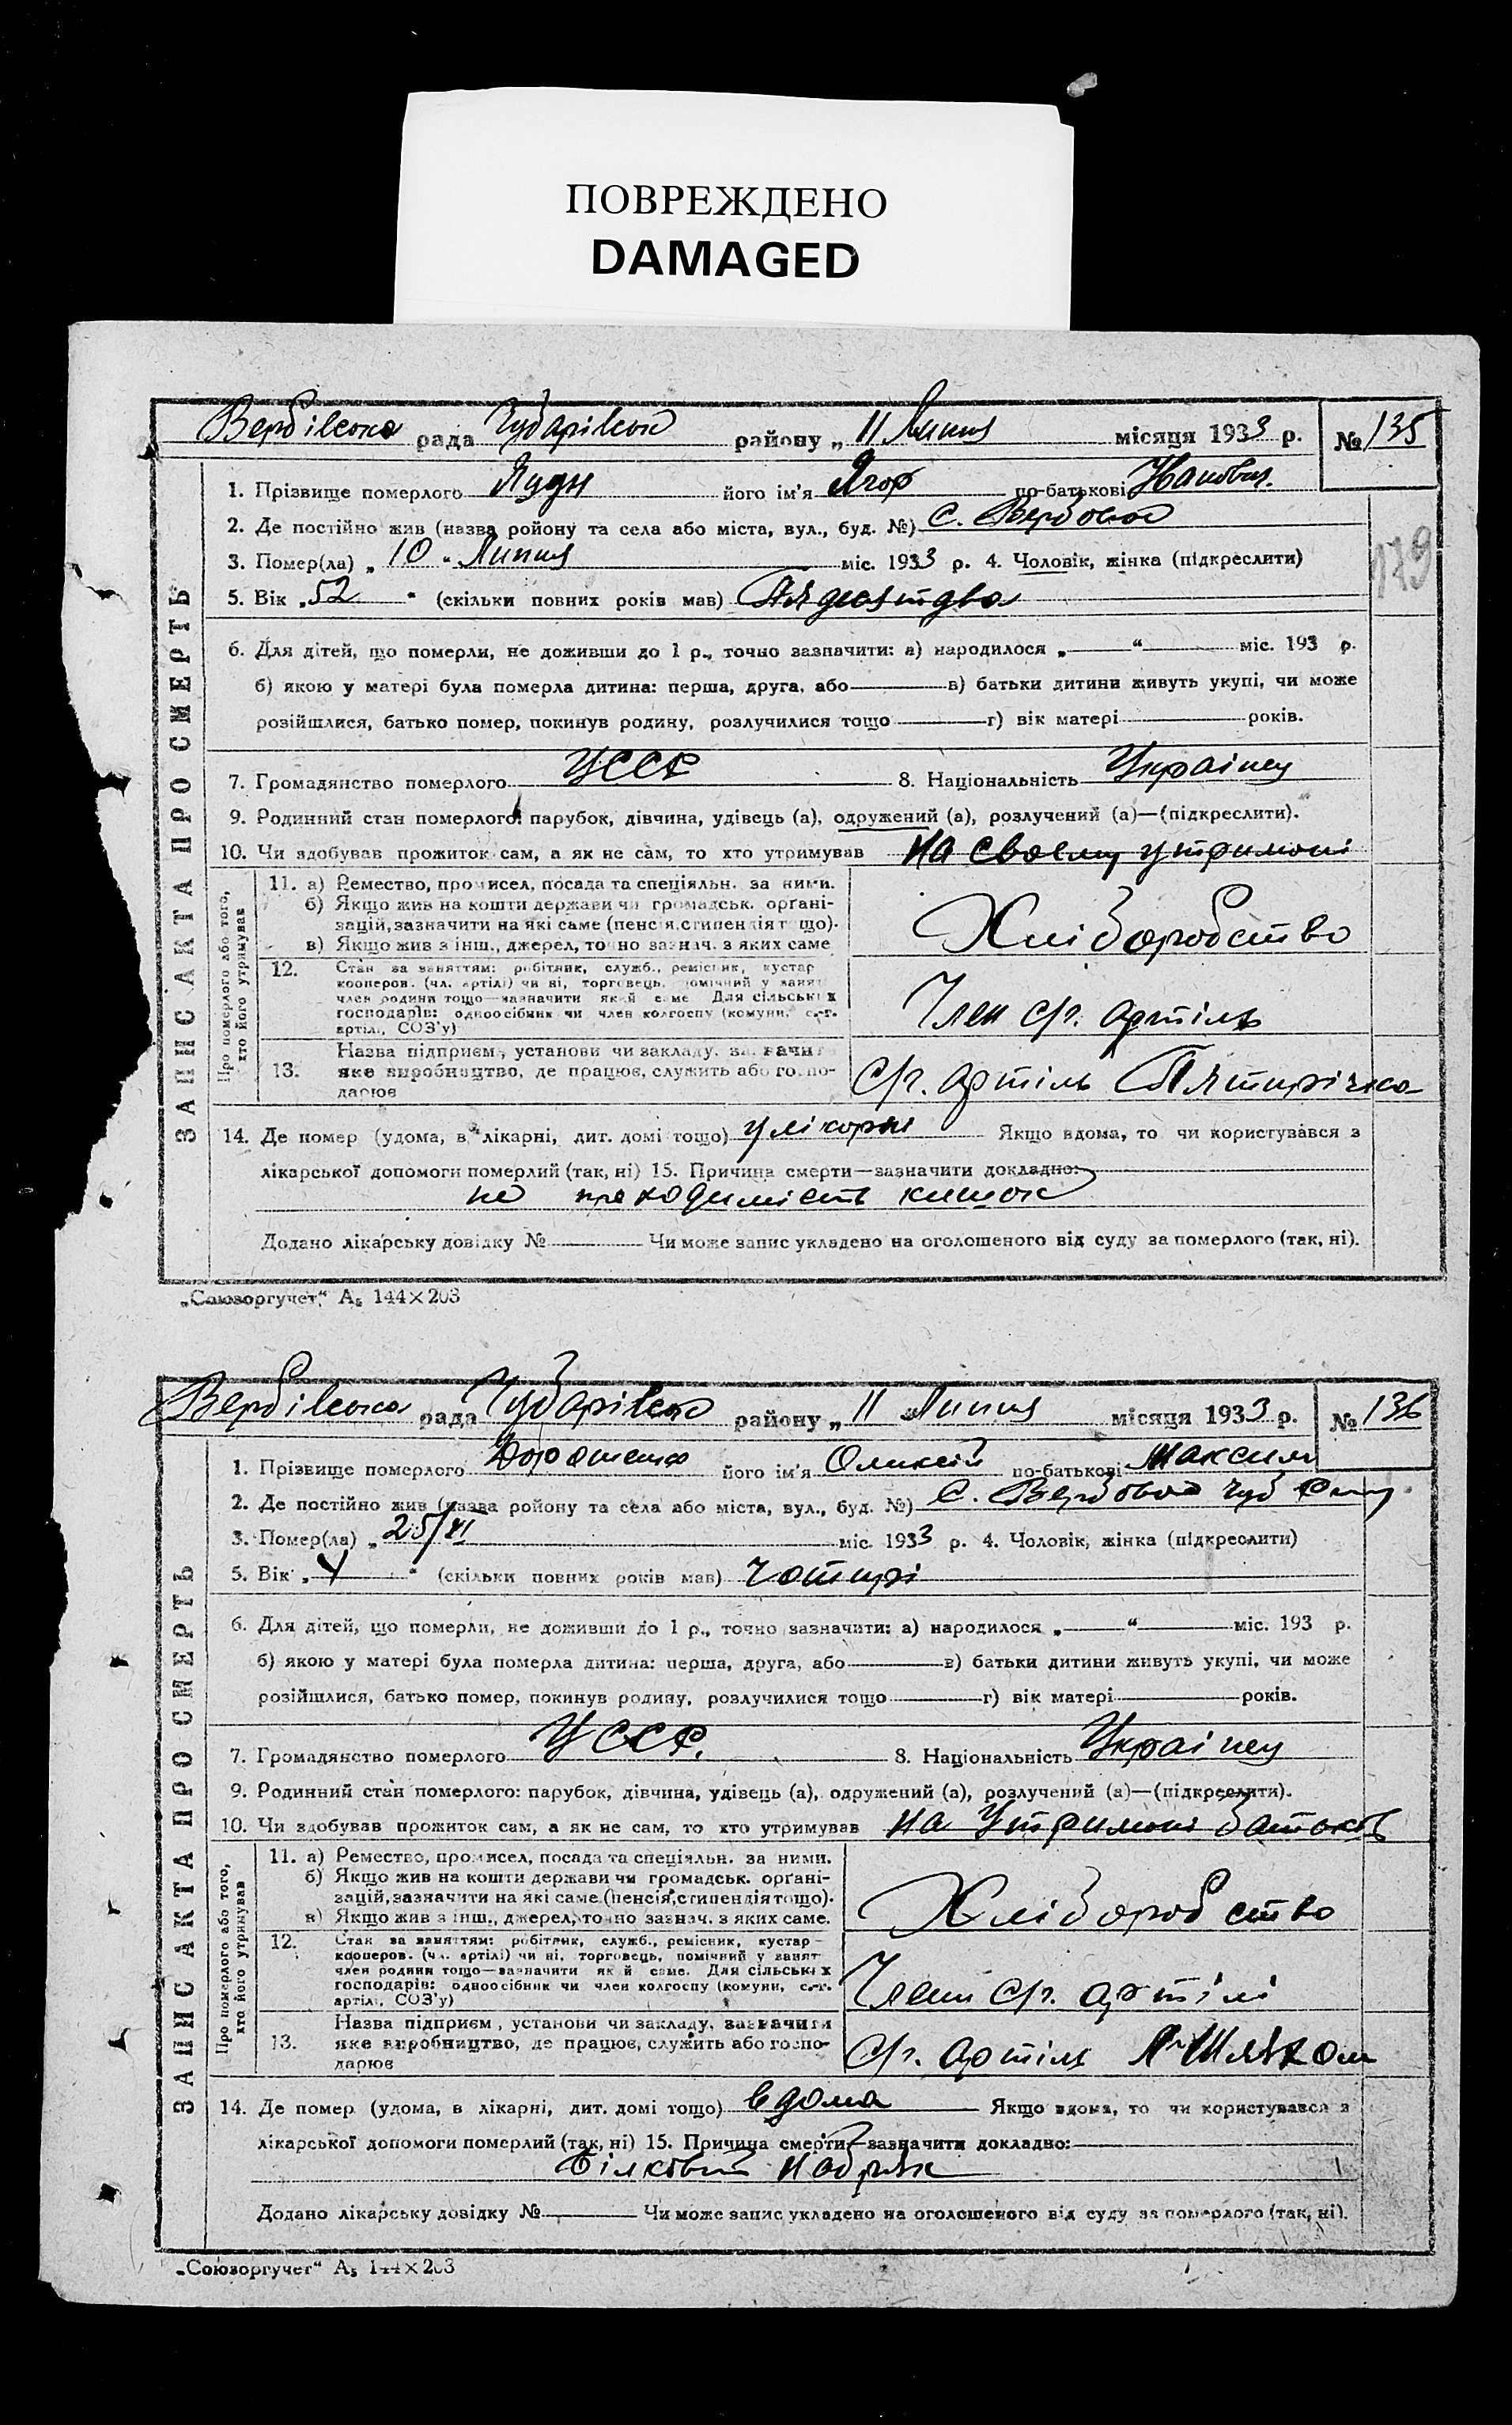 ПОВРЕЖДЕНО
DAMAGED
Вербівська рада Чубарівськ району „ 11 Липня місяця 1933 р. № 135
1. Прізвище померлого його ім'я Ягор по-батькові Іванович
2. Де постійно жив (назва ройону та села або міста, вул., буд. №) С. Вербова
179
3. Помер(ла) „ 10 " Липня міс. 1933 р. 4. Чоловік, жінка (підкреслити)
5. Вік „ 52 " (скільки повних років мав) Пядесятдва
6. Для дітей, що померли, не доживши до 1 р., точно зазначити: а) народилося „ “ міс. 193 р.
б) якою у матері була померла дитина: перша, друга, або в) батьки дитини живуть укупі, чи може
розійшлися, батько помер, покинув родину, розлучилися тощо г) вік матері років.
7. Громадянство померлого УССР 8. Національність Украінец
9. Родинний стан померлого: парубок, дівчина, удівець (а), одружений (а), розлучений (а)—(підкреслити).
10. Чи здобував прожиток сам, а як не сам, то хто утримував на своему утримані
ЗАПИС АКТА ПРО СМЕРТЬ
Про померлого або того, хто його утримував
11. а) Ремество, промисел, посада та спеціяльн. за ними.
б) Якщо жив на кошти держави чи громадськ. орґані-
зацій, зазначити на які саме (пенсія, стипендія тощо).
в) Якщо жив з інш., джерел, точно зазнач. з яких саме
Хліборобство
12. Стан за заняттям: робітник, служб., ремісник, кустар
кооперов. (чл. артілі) чи ні, торговець, помічний у занят
член родини тощо—зазначити який саме Для сільських
господарів: одноосібник чи член колгоспу (комуни, с.-г.
артілі, СОЗ'у)
Член с/г. артіль
13. Назва підприєм., установи чи закладу, зазначити
яке виробництво, де працює, служить або госпо-
дарює
с/г. артіль Пятирічка
14. Де помер (удома, в лікарні, дит. домі тощо) у лікорні Якщо вдома, то чи користувався з
лікарської допомоги померлий (так, ні) 15. Причина смерти—зазначити докладно:
не проходимість кишок
Додано лікарську довідку № Чи може запис укладено на оголошеного від суду за померлого (так, ні).
„Союзоргучет“ А₅ 144×203
Вербівська рада Чубарівськ району „ 11 Липня місяця 1933 р. № 136
1. Прізвище померлого Дорошенко його ім'я Оликсій по-батькові Максим
2. Де постійно жив (назва ройону та села або міста, вул., буд. №) С. Вербова Чуб
3. Помер(ла) „ 25/VI міс. 1933 р. 4. Чоловік, жінка (підкреслити)
5. Вік „ 4 " (скільки повних років мав) чотирі
6. Для дітей, що померли, не доживши до 1 р., точно зазначити: а) народилося „ “ міс. 193 р.
б) якою у матері була померла дитина: перша, друга, або в) батьки дитини живуть укупі, чи може
розійшлися, батько помер, покинув родину, розлучилися тощо г) вік матері років.
7. Громадянство померлого УССР. 8. Національність Украінец
9. Родинний стан померлого: парубок, дівчина, удівець (а), одружений (а), розлучений (а)—(підкреслити).
10. Чи здобував прожиток сам, а як не сам, то хто утримував на утримані батьків
ЗАПИС АКТА ПРО СМЕРТЬ
Про померлого або того, хто його утримував
11. а) Ремество, промисел, посада та спеціяльн. за ними.
б) Якщо жив на кошти держави чи громадськ. орґані-
зацій, зазначити на які саме (пенсія, стипендія тощо).
в) Якщо жив з інш., джерел, точно зазнач. з яких саме.
Хліборобство
12. Стан за заняттям: робітник, служб., ремісник, кустар—
кооперов. (чл. артілі) чи ні, торговець, помічний у занят
член родини тощо—зазначити який саме. Для сільських
господарів: одноосібник чи член колгоспу (комуни, с.-г.
артілі, СОЗ'у)
Члени с/г. артілі
13. Назва підприєм., установи чи закладу, зазначити
яке виробництво, де працює, служить або госпо-
дарює
с/г. артіль Шляхом
14. Де помер (удома, в лікарні, дит. домі тощо) вдома Якщо вдома, то чи користувався з
лікарської допомоги померлий (так, ні) 15. Причина смерти—зазначити докладно:
Білковий набряк
Додано лікарську довідку № Чи може запис укладено на оголошеного від суду за померлого (так, ні).
„Союзоргучет“ А₅ 144×203